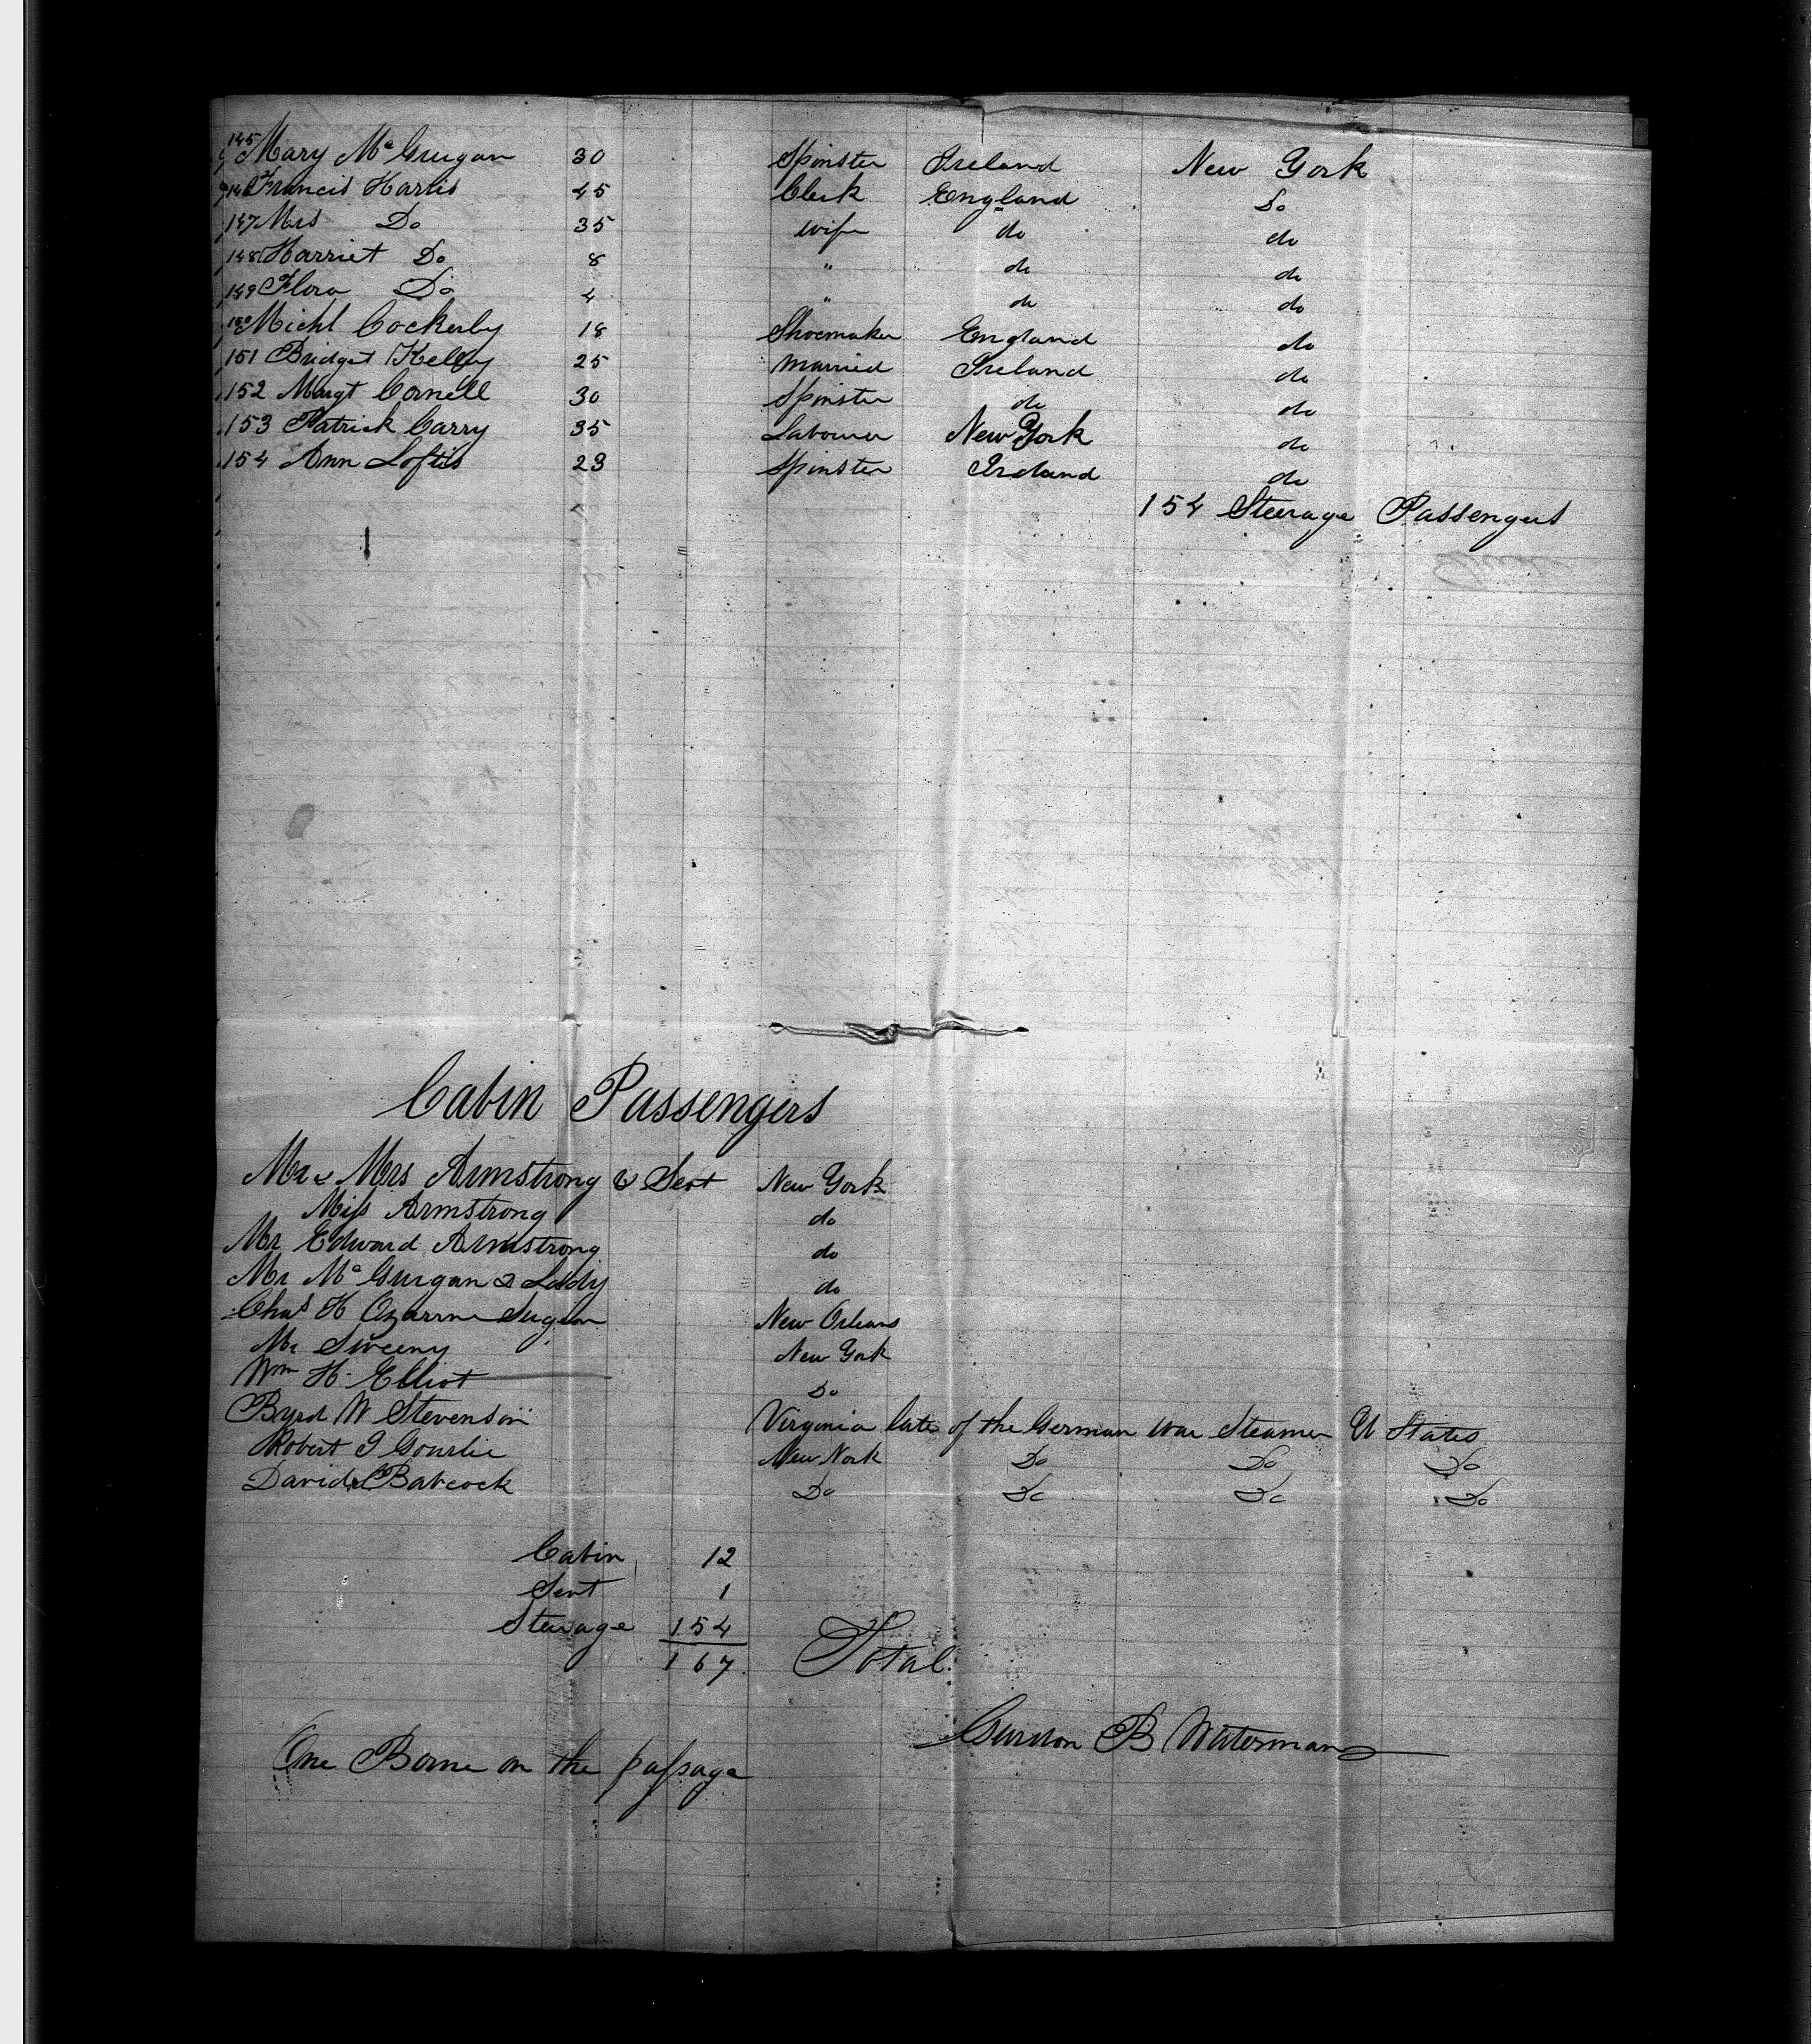 145 Mary McGuigan 30 Spinster Ireland New York
146 Francis Harris 45 Clerk England Do
147 Mrs Do 35 wife do do
148 Harriet Do 8 " do do
149 Flora Do 4 " do do
150 Michl Cockerby 18 Shoemaker England do
151 Bridget Kelly 25 Married Ireland do
152 Margt Cornell 30 Spinster do do
153 Patrick Carry 35 Labourer New York do
154 Ann Loftis 23 Spinster Ireland do
154 Steerage Passengers
Cabin Passengers
Mr & Mrs Armstrong & Sevt New York
Miss Armstrong do
Mr Edward Armstrong do
Mr McGurgan & Lady do
Chas H New Orleans
Mr Sweeny New York
Wm H. Elliot Do
Byrd W Stevenson Virginia late of the German War Steamer U States
Robert J Gourlie New York Do Do Do
David Babcock Do Do Do Do
Cabin 12
Sevt 1
Steerage 154
167 Total.
Gurdon B Waterman
One Borne on the passage